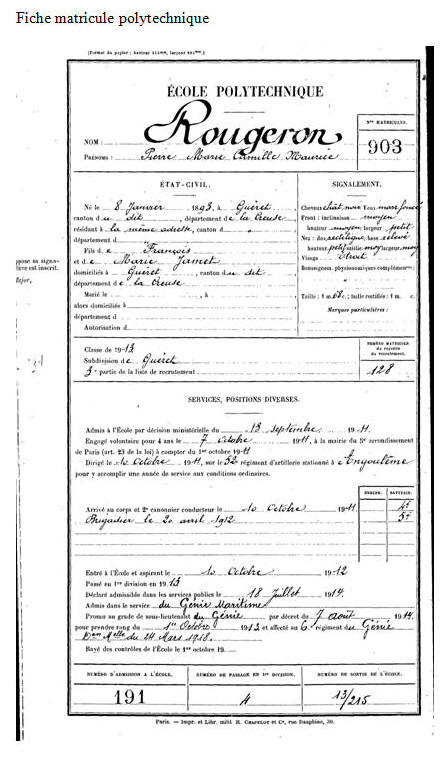 Fiche matricule polytechnique
(Format du papier : hauteur 311mm, largeur 191mm.)
ÉCOLE POLYTECHNIQUE
Nos MATRICULES.
903
NOM : Rougeron
PRÉNOMS : Pierre Marie Camille Maurice
ÉTAT-CIVIL.
Né le 8 Janvier 1893, à Guéret
canton du dit, département de la Creuse
résidant à la même adresse, canton d
département d
Fils de François
et de Marie Jamet
domiciliés à Guéret, canton du dit
département de la Creuse
Marié le , à
alors domiciliée à
département d
Autorisation d
SIGNALEMENT.
Cheveux chât. noir Yeux marr foncé
Front : inclinaison moyen
hauteur moyen largeur petit
Nez : dos rectiligne, base relevé
hauteur petit saillie moy largeur moy
Visage étroit
Renseignem. physionomiques complémentres :
Taille : 1 m. 68 c.; taille rectifiée : 1 m. c.
Marques particulières :
Classe de 1913
Subdivision de Guéret
3e partie de la liste de recrutement
NUMÉRO MATRICULE
du registre
du recrutement.
128
SERVICES, POSITIONS DIVERSES.
Admis à l'École par décision ministérielle du 13 septembre 1911.
Engagé volontaire pour 4 ans le 7 Octobre 1911, à la mairie du 5e arrondissement
de Paris (art. 23 de la loi) à compter du 1er octobre 1911
Dirigé le 10 Octobre 1911, sur le 52e régiment d'artillerie stationné à Angoulême
pour y accomplir une année de service aux conditions ordinaires.
BATTERIE.
Arrivé au corps et 2e canonnier conducteur le 10 Octobre 1911 4e
Brigadier le 20 avril 1912 5e
Entré à l'École et aspirant le 10 Octobre 1912
Passé en 1re division en 1913
Déclaré admissible dans les services publics le 18 Juillet 1914.
Admis dans le service du Génie Maritime
Promu au grade de sous-lieutenant du Génie par décret du 7 août 1914.
pour prendre rang du 1er Octobre 1913 et affecté au 6e régiment du Génie
Don Melle du 24 Mars 1918.
Rayé des contrôles de l'École le 1er octobre 19
NUMÉRO D'ADMISSION A L'ÉCOLE.
191
NUMÉRO DE PASSAGE EN 1re DIVISION.
4
NUMÉRO DE SORTIE DE L'ÉCOLE.
13/215
Paris. — Impr. et Libr. milit. R. CHAPELOT et Ce, rue Dauphine, 30.